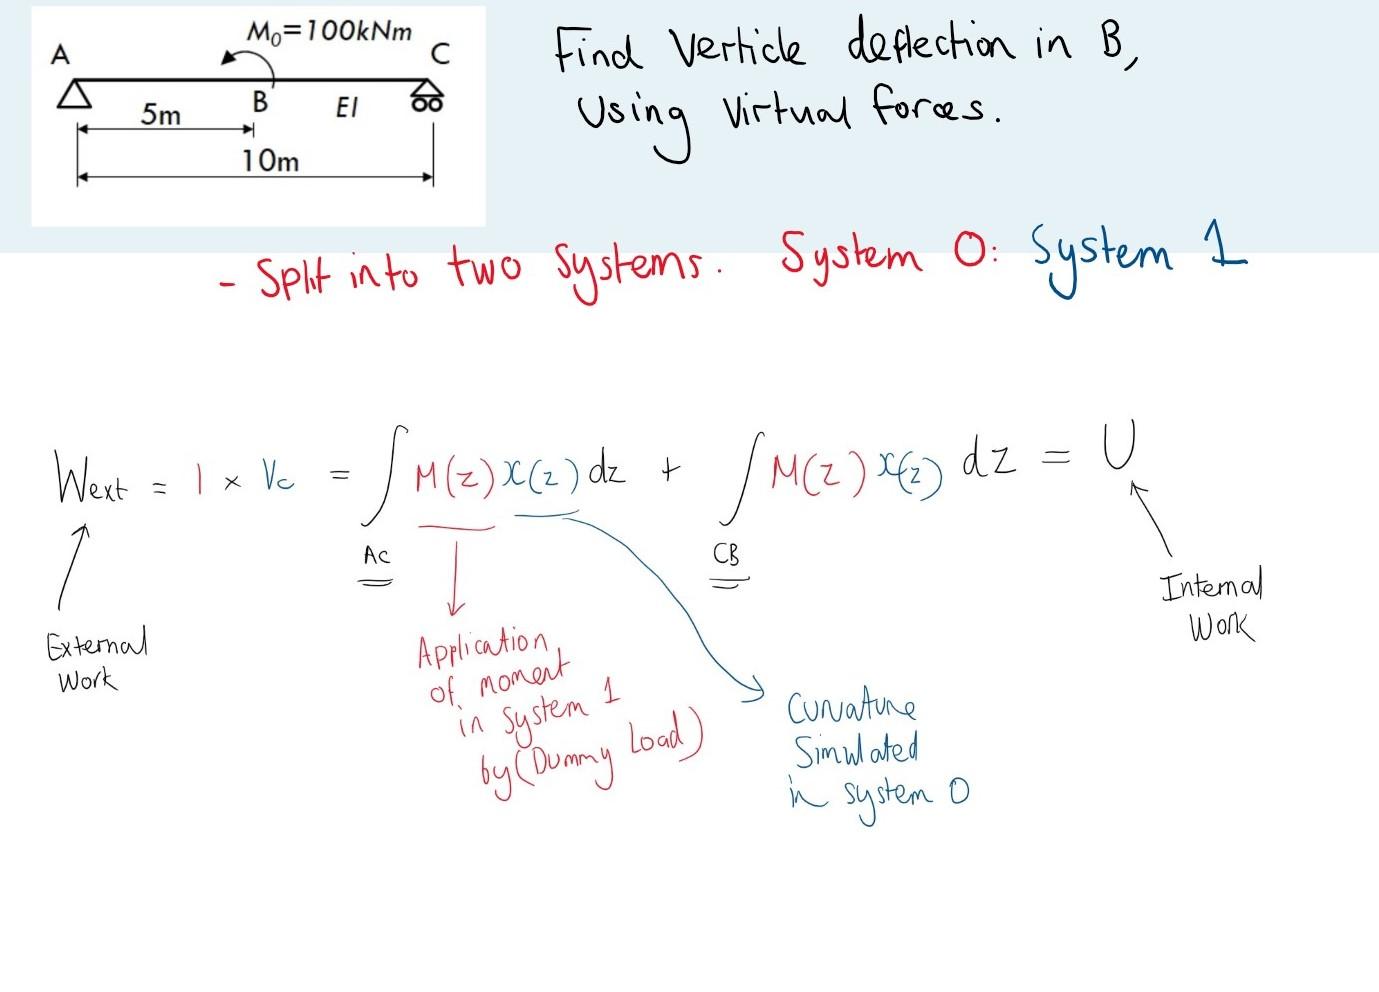 M₀=100kNm
A
C
B
EI
5m
10m
Find Verticle deflection in B,
Using Virtual forces.
- Split into two Systems. System 0: System 1
Wext = 1 × Vc = ∫ M(z) x(z) dz + ∫ M(z) x(z) dz = U
AC
CB
External
Work
Internal
Work
Application
of moment
in System 1
by (Dummy Load)
Curvature
Simulated
in system 0